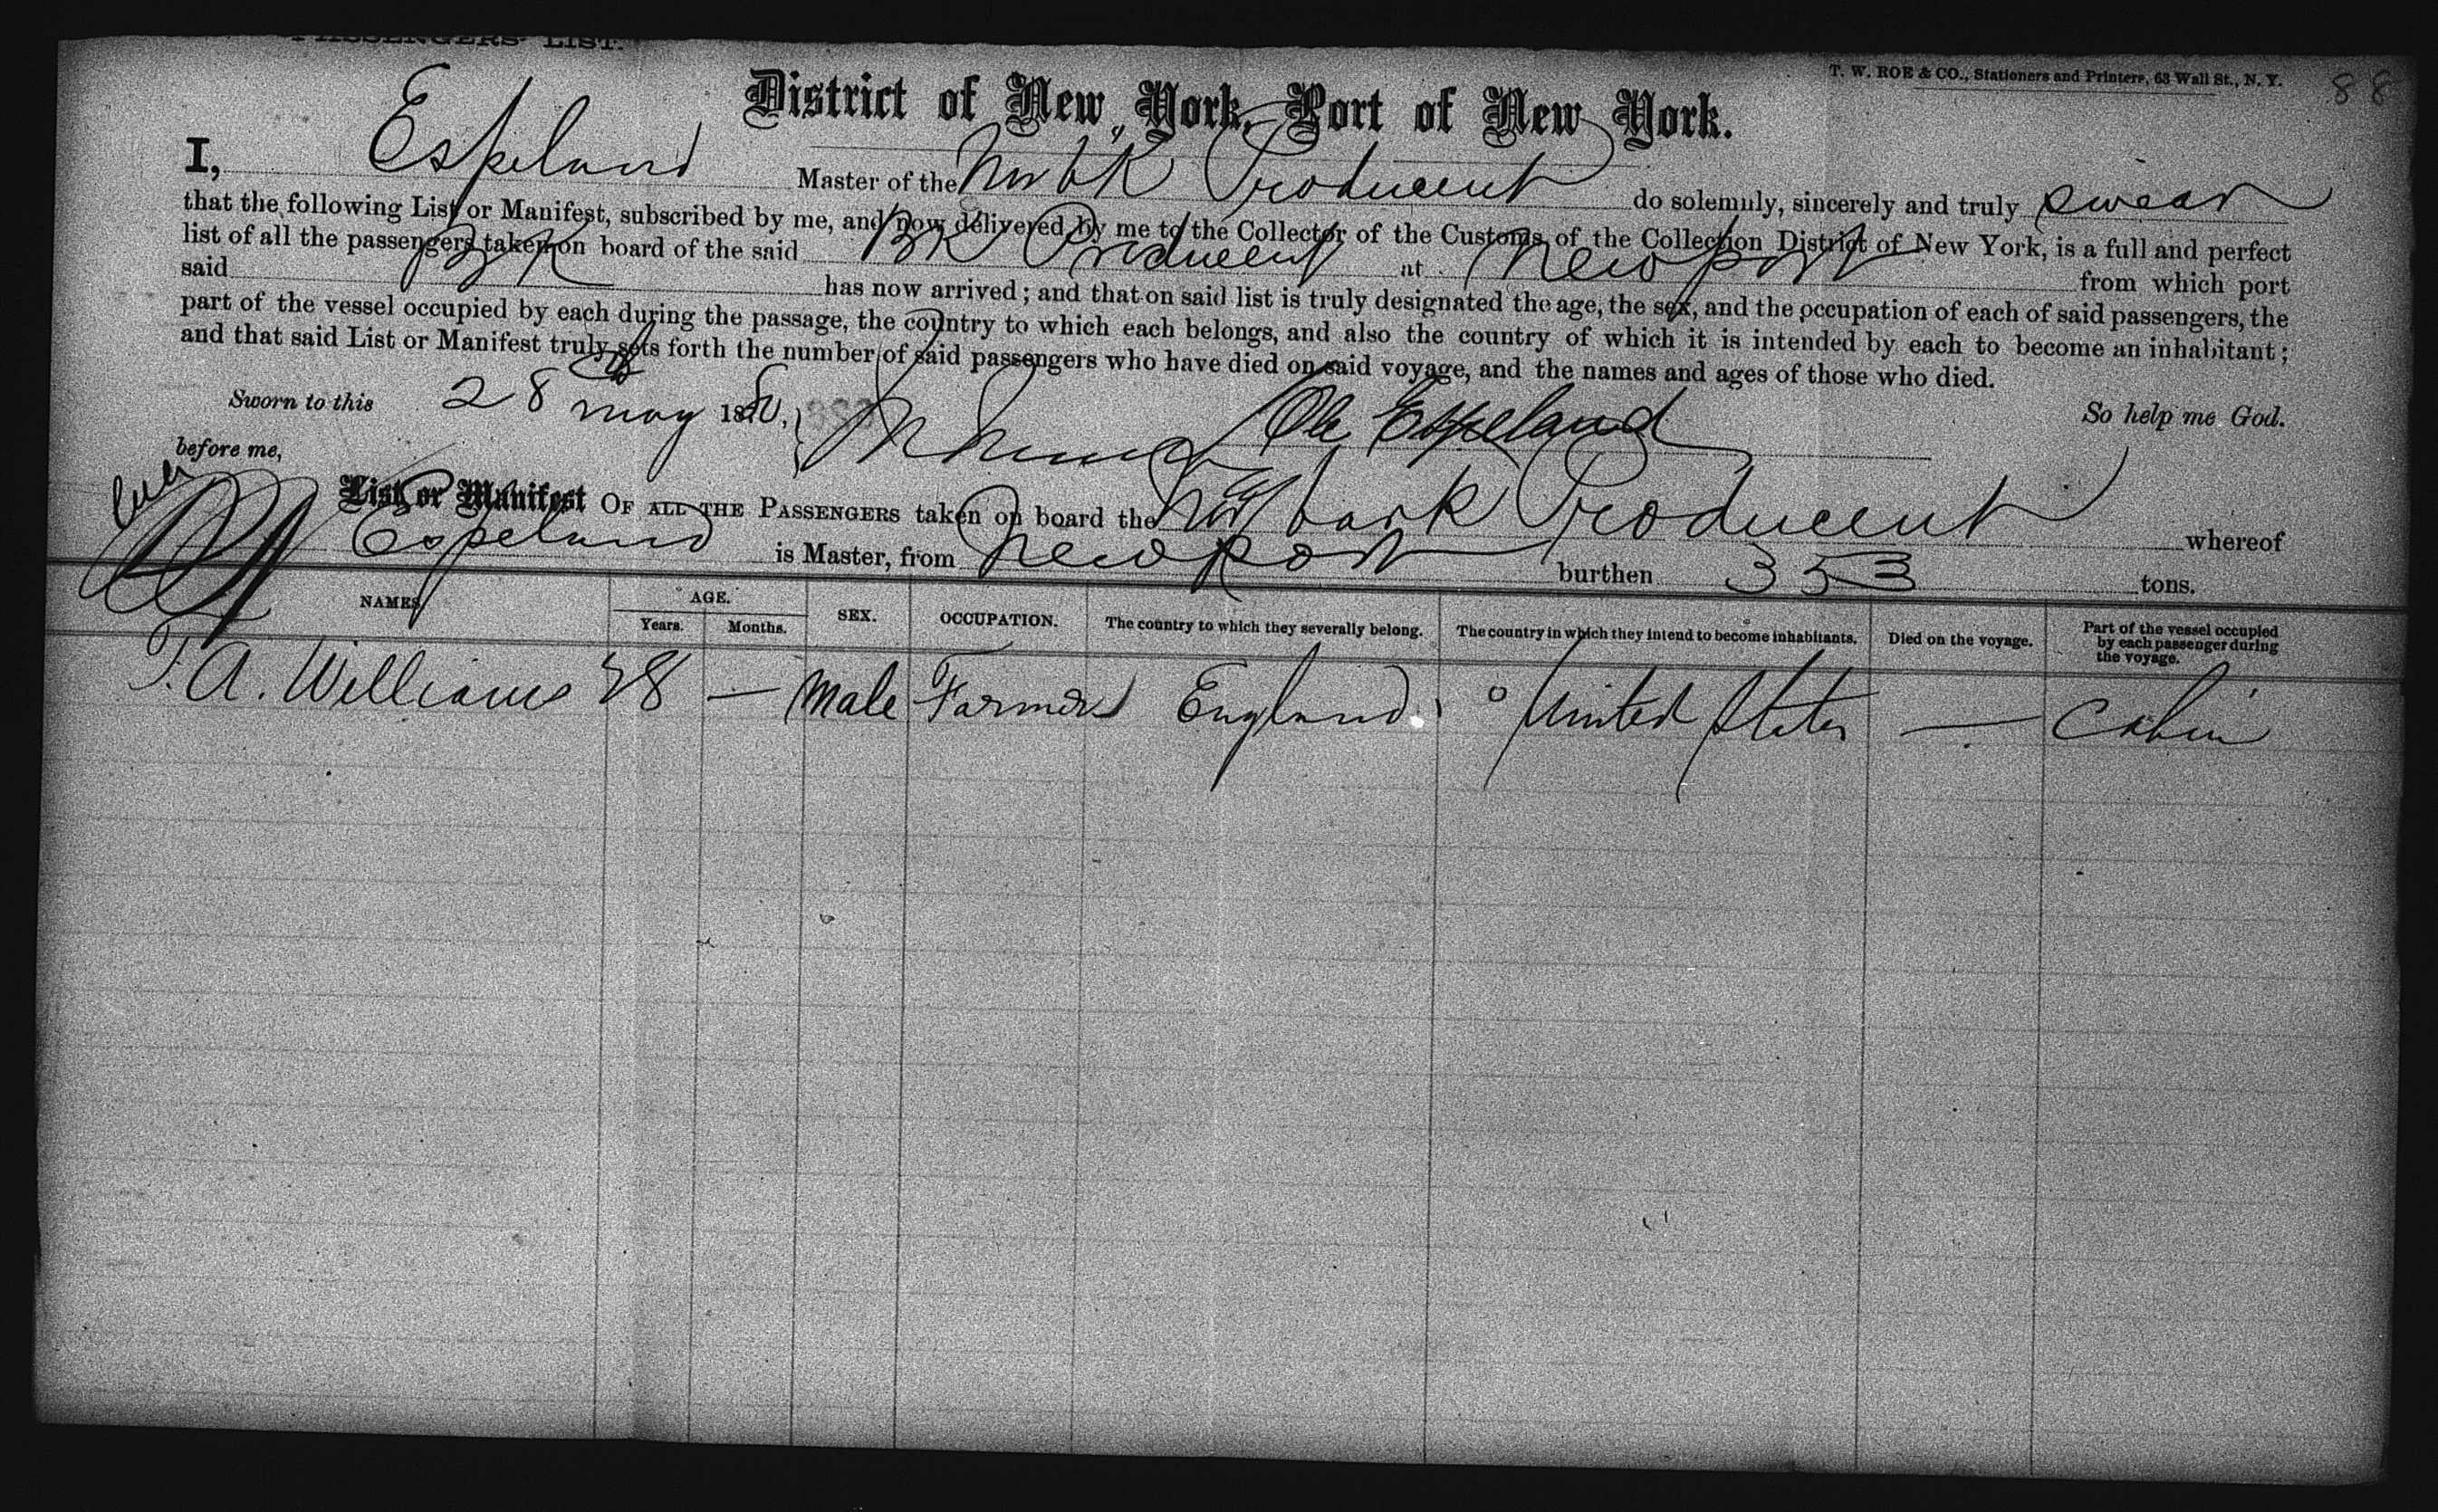 PASSENGERS' LIST.
T. W. ROE & CO., Stationers and Printers, 63 Wall St., N. Y.
88
District of New York, Port of New York.
I, Espeland Master of the Nor bk Producent do solemnly, sincerely and truly swear
that the following List or Manifest, subscribed by me, and now delivered by me to the Collector of the Customs of the Collection District of New York, is a full and perfect
list of all the passengers taken on board of the said BK Producent at Newport from which port
said BK has now arrived; and that on said list is truly designated the age, the sex, and the occupation of each of said passengers, the
part of the vessel occupied by each during the passage, the country to which each belongs, and also the country of which it is intended by each to become an inhabitant;
and that said List or Manifest truly sets forth the number of said passengers who have died on said voyage, and the names and ages of those who died.
Sworn to this 28th may 1880, Ole Espeland So help me God.
before me,
List or Manifest OF ALL THE PASSENGERS taken on board the Nor bark Producent whereof
Espeland is Master, from Newport burthen 353 tons.
NAMES AGE. Years. Months. SEX. OCCUPATION. The country to which they severally belong. The country in which they intend to become inhabitants. Died on the voyage. Part of the vessel occupied by each passenger during the voyage.
T. A. Williams 28 — Male Farmer England. United States — Cabin